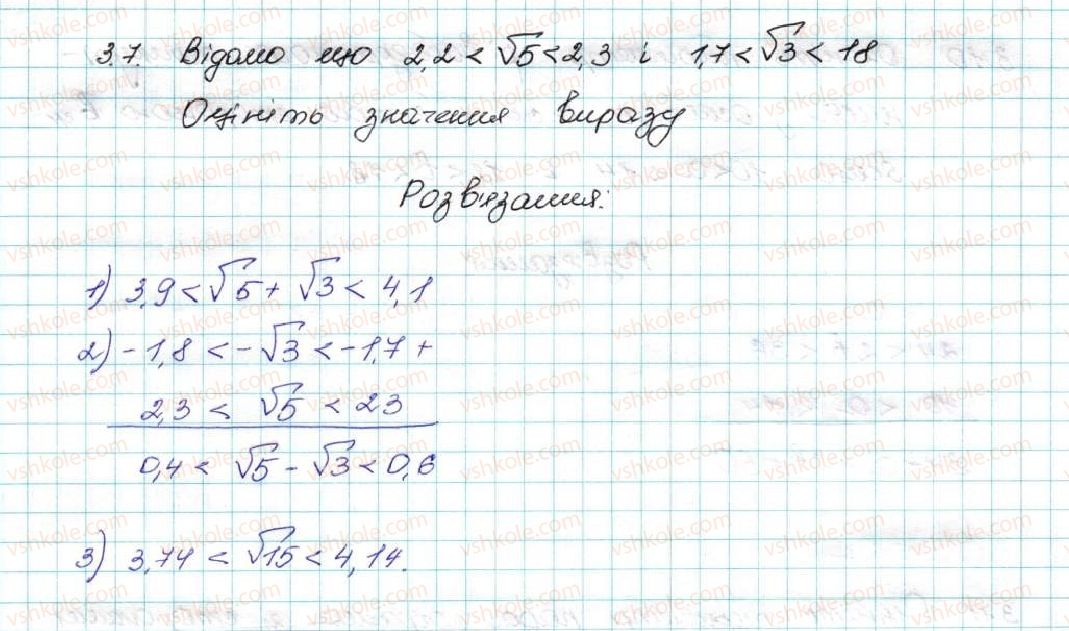 3.7. Відомо що 2,2 < √5 < 2,3 і 1,7 < √3 < 18
Оцініть значення виразу
Розв'язання:
1) 3,9 < √5 + √3 < 4,1
2) -1,8 < -√3 < -1,7 +
2,3 < √5 < 23
0,4 < √5 - √3 < 0,6
3) 3,74 < √15 < 4,14.